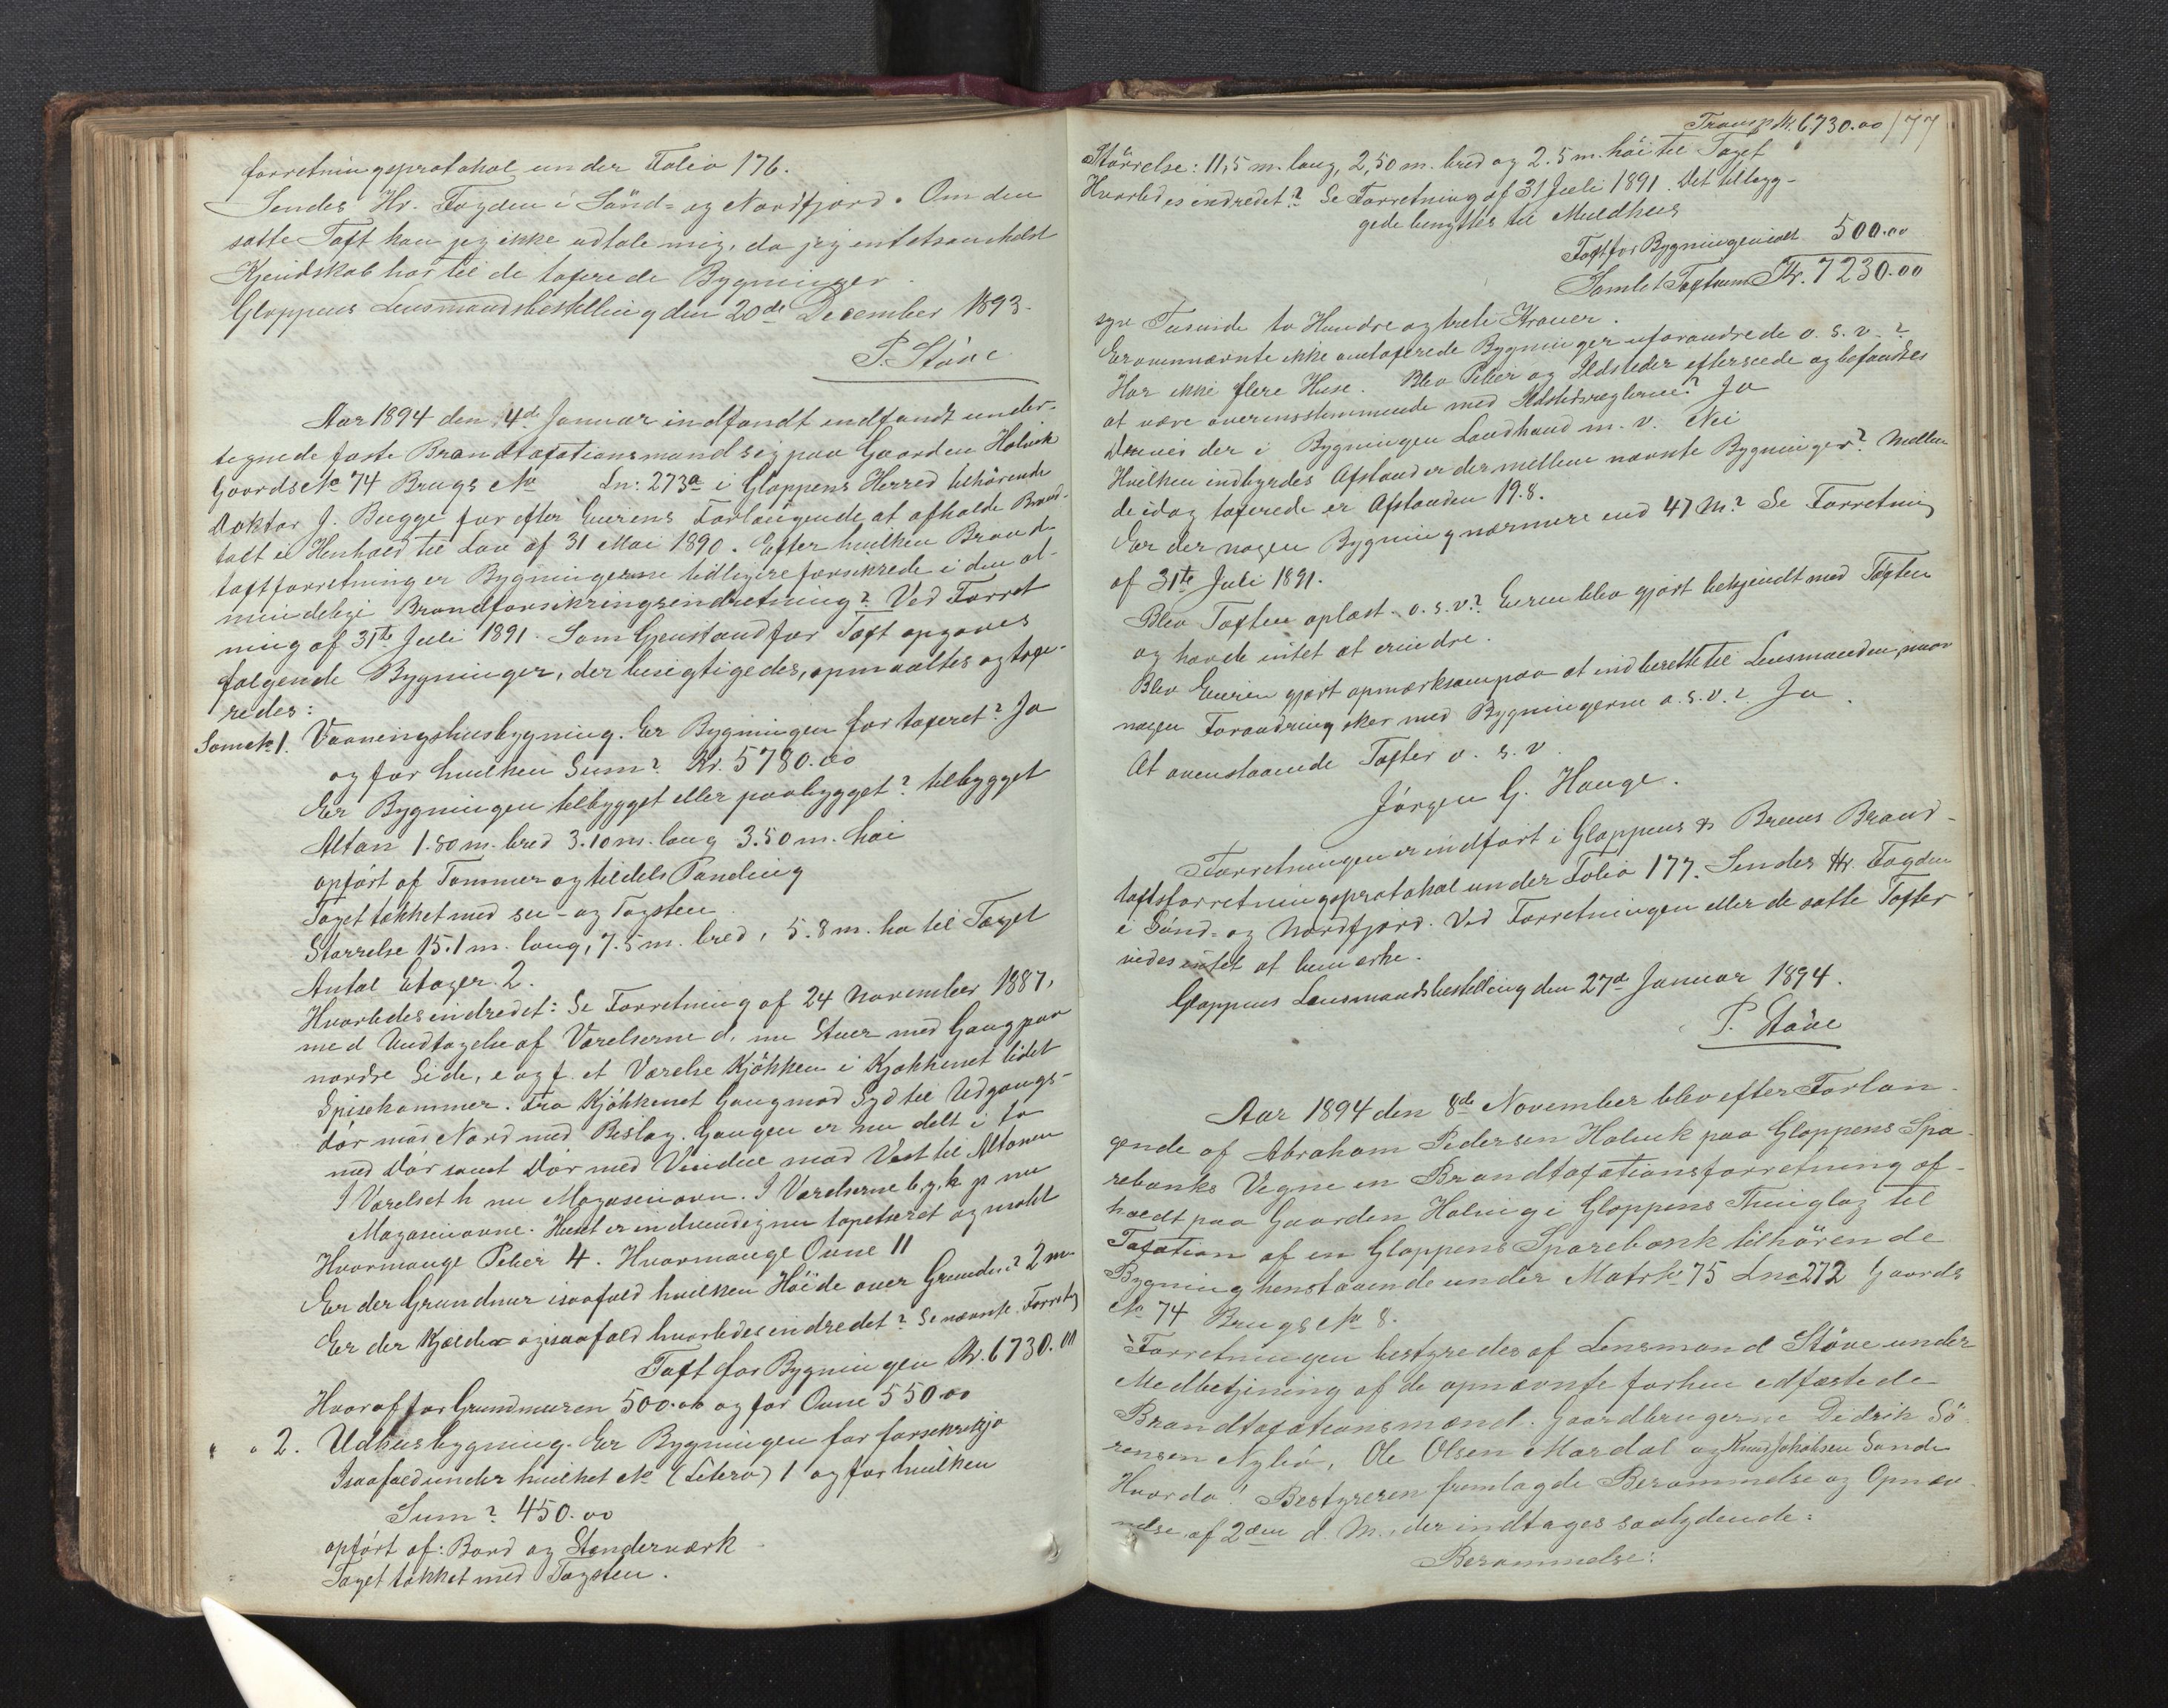 forretningsprotokol under Folio 176.
Sendes Hr. Fogden i Sönd- og Nordfjord. Om den
satte Taxt kan jeg ikke udtale mig, da jeg intetsomhelst
Kjendskab har til de taxerede Bygninger.
Gloppens Lensmandsbestilling den 20de December 1893.
P. Støve
Aar 1894 den 4de Januar indfandt indfandt under-
tegnede faste Brandtaxationsmænd sig paa Gaarden Holvik
Gaards No 74 Brugs No Ln: 273a i Gloppens Herred tilhörende
Doktor J. Bugge for efter Eierens Forlangende at afholde Brand-
taxt i Henhold til Lov af 31 Mai 1890. Efter hvilken Brand-
taxtforretning er Bygningerne tidligere forsikrede i den al-
mindelige Brandforsikringsindretning? Ved Forret
ning af 31te Juli 1891. Som Gjenstand for Taxt opgaves
følgende Bygninger, der besigtigedes, opmaaltes og taxe-
redes:
Som No 1. Vaaningshusbygning. Er Bygningen før taxeret? Ja
og for hvilken Sum? Kr. 5780.00
Er Bygningen tilbygget eller paabygget? tilbygget
Altan 1.80 m. bred 3.10 m. lang 3.50 m. høi
opfört af Tømmer og tildels Paneling
Taget tækket med sten- og Tagsten
Størrelse 15.1 m. lang, 7.5 m. bred, 5.8 m. hø til Taget
Antal Etager 2.
Hvorledes indredet: Se Forretning af 24 November 1887,
med Undtagelse af Værelserne d. nu Stuer med Gang paa
nordre Side, e og f. et Værelse Kjökken i Kjøkkenet lidet
Spisekammer. Fra Kjökkenet Gang mod Syd til Udgangs-
dör mod Nord med Beslag. Gangen er nu delt i to
med Dör samt Dör med Vindue mod Vest til Altanen
I Værelset h nu Magasinovn. I Værelserne b, g, k p nu
Magasinovne. Huset er indvendig nu tapetseret og malt
Hvormange Piber 4. Hvormange Ovne 11
Er der Grundmur isaafald hvilken Høide over Grunden? 2 m.
Er der Kjælder og isaafald hvorledes indredet? Se nævnte Forretng
Taxt for Bygningen Kr. 6730.00
Hvoraf for Grundmuren 500.00 og for Ovne 550.00
" " 2. Udhusbygning. Er Bygningen før forsikret? ja
Isaafald under hvilket No (Litera) 1 og for hvilken
Sum? 450.00
opfört af: Bord og Stenderværk
Taget tækket med Tagsten.
Transp. Kr. 6730.00 177
Størrelse: 11,5 m. lang, 2,50 m. bred og 2.5 m. höi til Taget
Hvorledes indredet? Se Forretning af 31 Juli 1891. Det tilbyg-
gede benyttes til Muldhus
Taxt for Bygningen ialt 500.00
Samlet Taxtsum Kr. 7230.00
syv Tusinde to Hundre og treti Kroner.
Er ovennævnte ikke omtaxerede Bygninger uforandrede o. s. v.?
Har ikke flere Huse. Blev Piber og Ildsteder efterseede og befandtes
at være overensstemmende med Ildstedsreglerne? Ja
Drives der i Bygningen Landhand m. v. Nei
Hvilken indbyrdes Afstand er der mellem nævnte Bygninger? Mellem
de idag taxerede er Afstanden 19.8.
Er der nogen Bygning nærmere end 47 M? Se Forretning
af 31te Juli 1891.
Blev Taxten oplæst o. s. v? Eieren blev gjort bekjendt med Taxten
og havde intet at erindre.
Blev Eieren gjort opmærksom paa at indberette til Lensmanden, naar
nogen Forandring sker med Bygningerne o. s. v.? Ja.
At ovenstaaende Taxter o. s. v.
Jörgen G. Hauge.
Forretningen er indfört i Gloppens & Breims Brand-
taxtsforretningsprotokol under Folio 177. Sendes Hr. Fogden
i Sönd- og Nordfjord. Ved Forretningen eller de satte Taxter
vides intet at bemærke.
Gloppens Lensmandsbestilling den 27de Januar 1894.
P. Støve
Aar 1894 den 8de November blev efter Forlan-
gende af Abraham Pedersen Holvik paa Gloppens Spa-
rebanks Vegne en Brandtaxationsforretning af-
holdt paa Gaarden Holvig i Gloppens Thinglag til
Taxation af en Gloppens Sparebank tilhörende
Bygning henstaaende under Matr No 75 Lno 272 Gaards
No 74 Brugs No 8.
Forretningen bestyredes af Lensmand Stöve under
Medbetjening af de opnævnte forhen edfæstede
Brandtaxationsmænd. Gaardbrugerne Didrik Sö-
rensen Nybö, Ole Olsen Mardal og Knud Jakobsen Sande
Hvorda! Bestyreren fremlagde Berammelse og Opnæv-
nelse af 2den d. M. der indtages saalydende:
Berammelse: